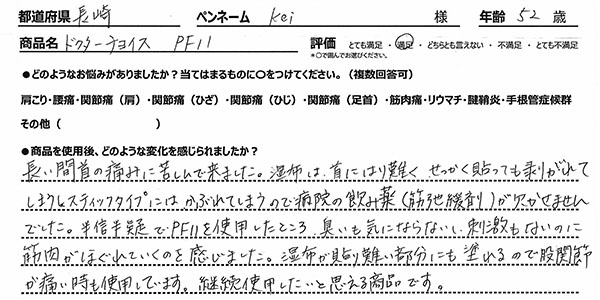 都道府県 長崎 ペンネーム kei 様 年齢 52 歳
商品名 ドクターチョイス PF11 評価 とても満足・満足・どちらとも言えない・不満足・とても不満足
*○で囲んでお選びください。
●どのようなお悩みがありましたか？当てはまるものに○をつけてください。（複数回答可）
肩こり・腰痛・関節痛（肩）・関節痛（ひざ）・関節痛（ひじ）・関節痛（足首）・筋肉痛・リウマチ・腱鞘炎・手根管症候群
その他（ ）
●商品を使用後、どのような変化を感じられましたか？
長い間首の痛みに苦しんで来ました。湿布は、首にはり難く せっかく貼っても剥がれて
しまうしスティックタイプには かぶれてしまうので病院の飲み薬（筋弛緩剤）が欠かせません
でした。半信半疑でPF11を使用したところ 臭いも気にならないし、刺激もないのに
筋肉がほぐれていくのを感じました。湿布が貼り難い部分にも塗れるので股関節
が痛い時も使用しています。継続使用したいと思える商品です。